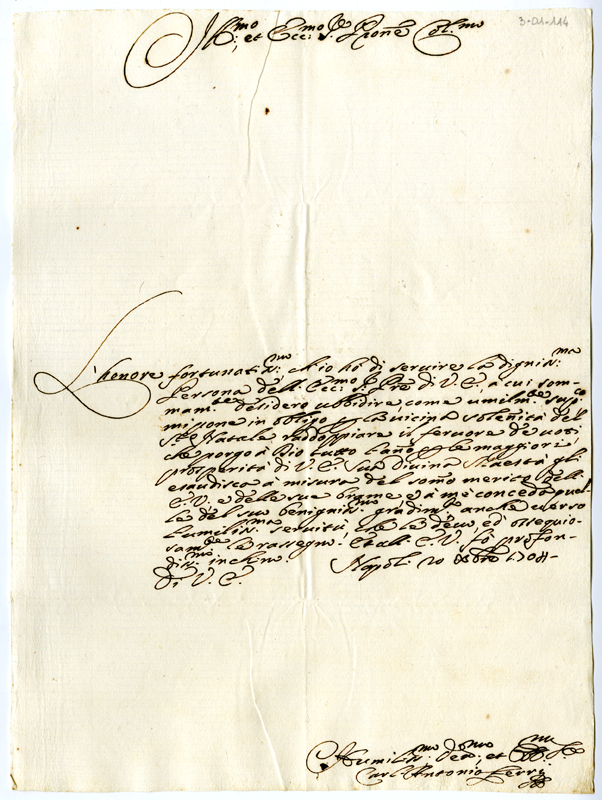 3-D1-114
Ill:mo et Ecc:mo S.re P.rone Col.mo
L'honore fortunatis:mo, ch'io hò di servire la dignis:ma
Persona dell'Ecc:mo S.r P.re di V.E., à cui som-
mam.te desidero ubbidire, come umilm.te supp.co
mi pone in obligo p la vicina solennità del
S.to Natale raddoppiare il fervore de voti
che porgo à Dio tutto l'año p le maggiori
prosperità di V.E. Sua Divina Maestà gli
esaudisca à misura del som̃o merito dell'
E.V. e delle sue brame, e à me conceda quel-
le del suo benignis:mo gradim.to anche verso
l'umilis:ma servitù, che le devo, ed ossequio-
sam.te le rassegno. Et all'E.V. fò profon-
dis:mo inch.no
Napoli 20 Xbre 1708
Di V.E.
Humilis:mo Dev:mo et Obl:mo Se.
Carl'Antonio Ferri